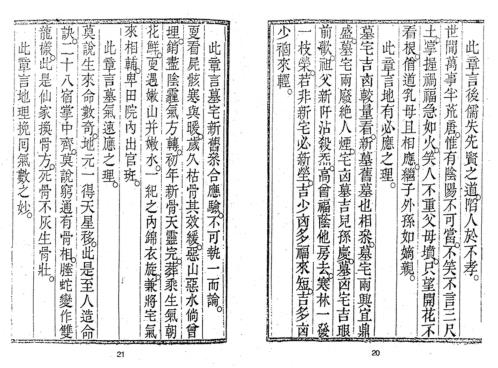 此章言後儒失先賢之道。陷人於不孝。
世間萬事半荒唐。惟有陰陽不可當。不笑不言三尺
土。掌握禍福急如火。笑人不重父母墳。只望開花不
看根。偕道乳母且相應。繼子外孫如嫡親。
此章言地有必應之理。
墓宅吉凶較量看。新墓舊墓也相參。墓宅兩興宜鼎
盛。墓宅兩廢絕人煙。宅凶墓吉見孫慶。墓凶宅吉眼
前歌。祖父新阡沾殺炁。高曾福蔭他房去。寒林一發
一枝榮。若非新宅必新塋。吉少凶多福來短。吉多凶
少禍來輕。
20
此章言墓宅新舊參合應驗。不可執一而論。
更看屍骸寒與暖。歲久枯骨其效緩。惡山惡水倘曾
埋。銷盡陰霾氣方轉。初年新骨天靈完。葬乘生氣朝
花鮮。更遇嫩山并嫩水。一紀之內錦衣旋。兼將宅氣
來相輔。卑田院內出官班。
此章言墓氣遠應之理。
莫說生來命數奇。地元一得天星移。此是至人造命
訣。二十八宿掌中齊。莫說窮通有骨相。螣蛇變作雙
龍樣。此是仙家換骨方。死骨不灰生骨壯。
此章言地理挽囘氣數之妙。
21